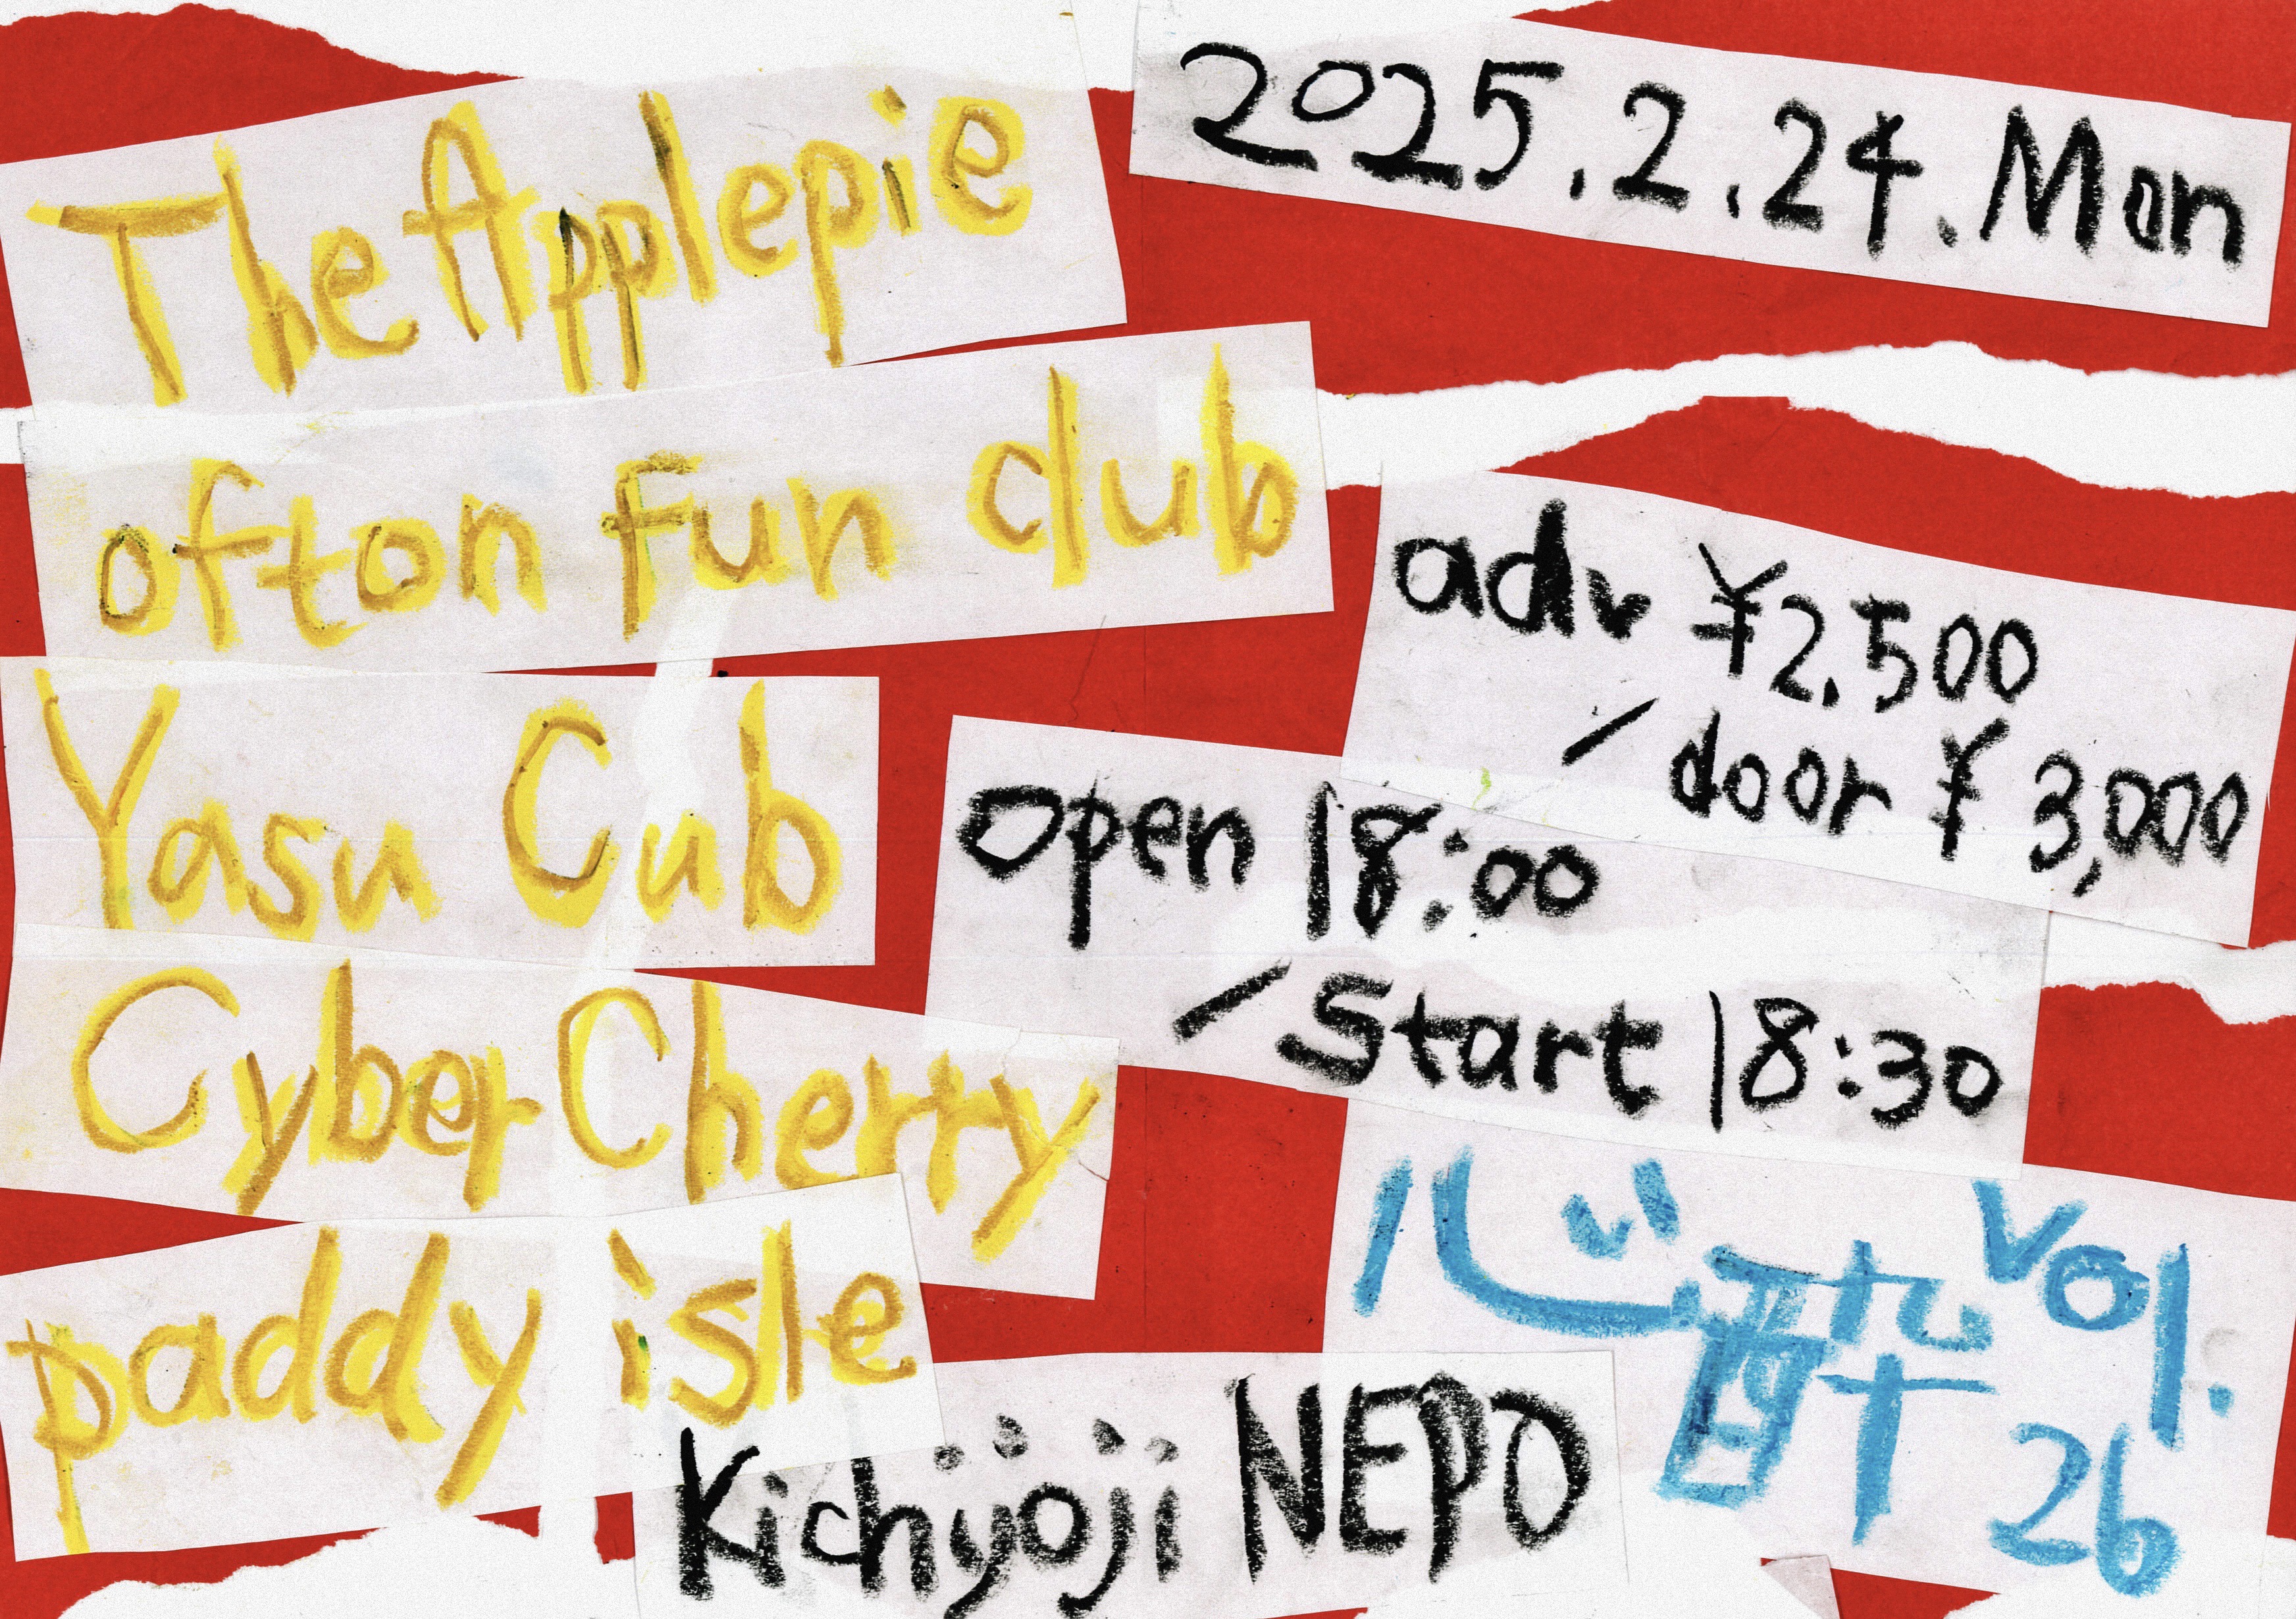 The Applepie
ofton fun club
Yasu Cub
Cyber Cherry
paddy isle
2025.2.24.Mon
adv ¥2,500
/door ¥3,000
open 18:00
/Start 18:30
心酔 vol.
26
Kichyoji NEPO